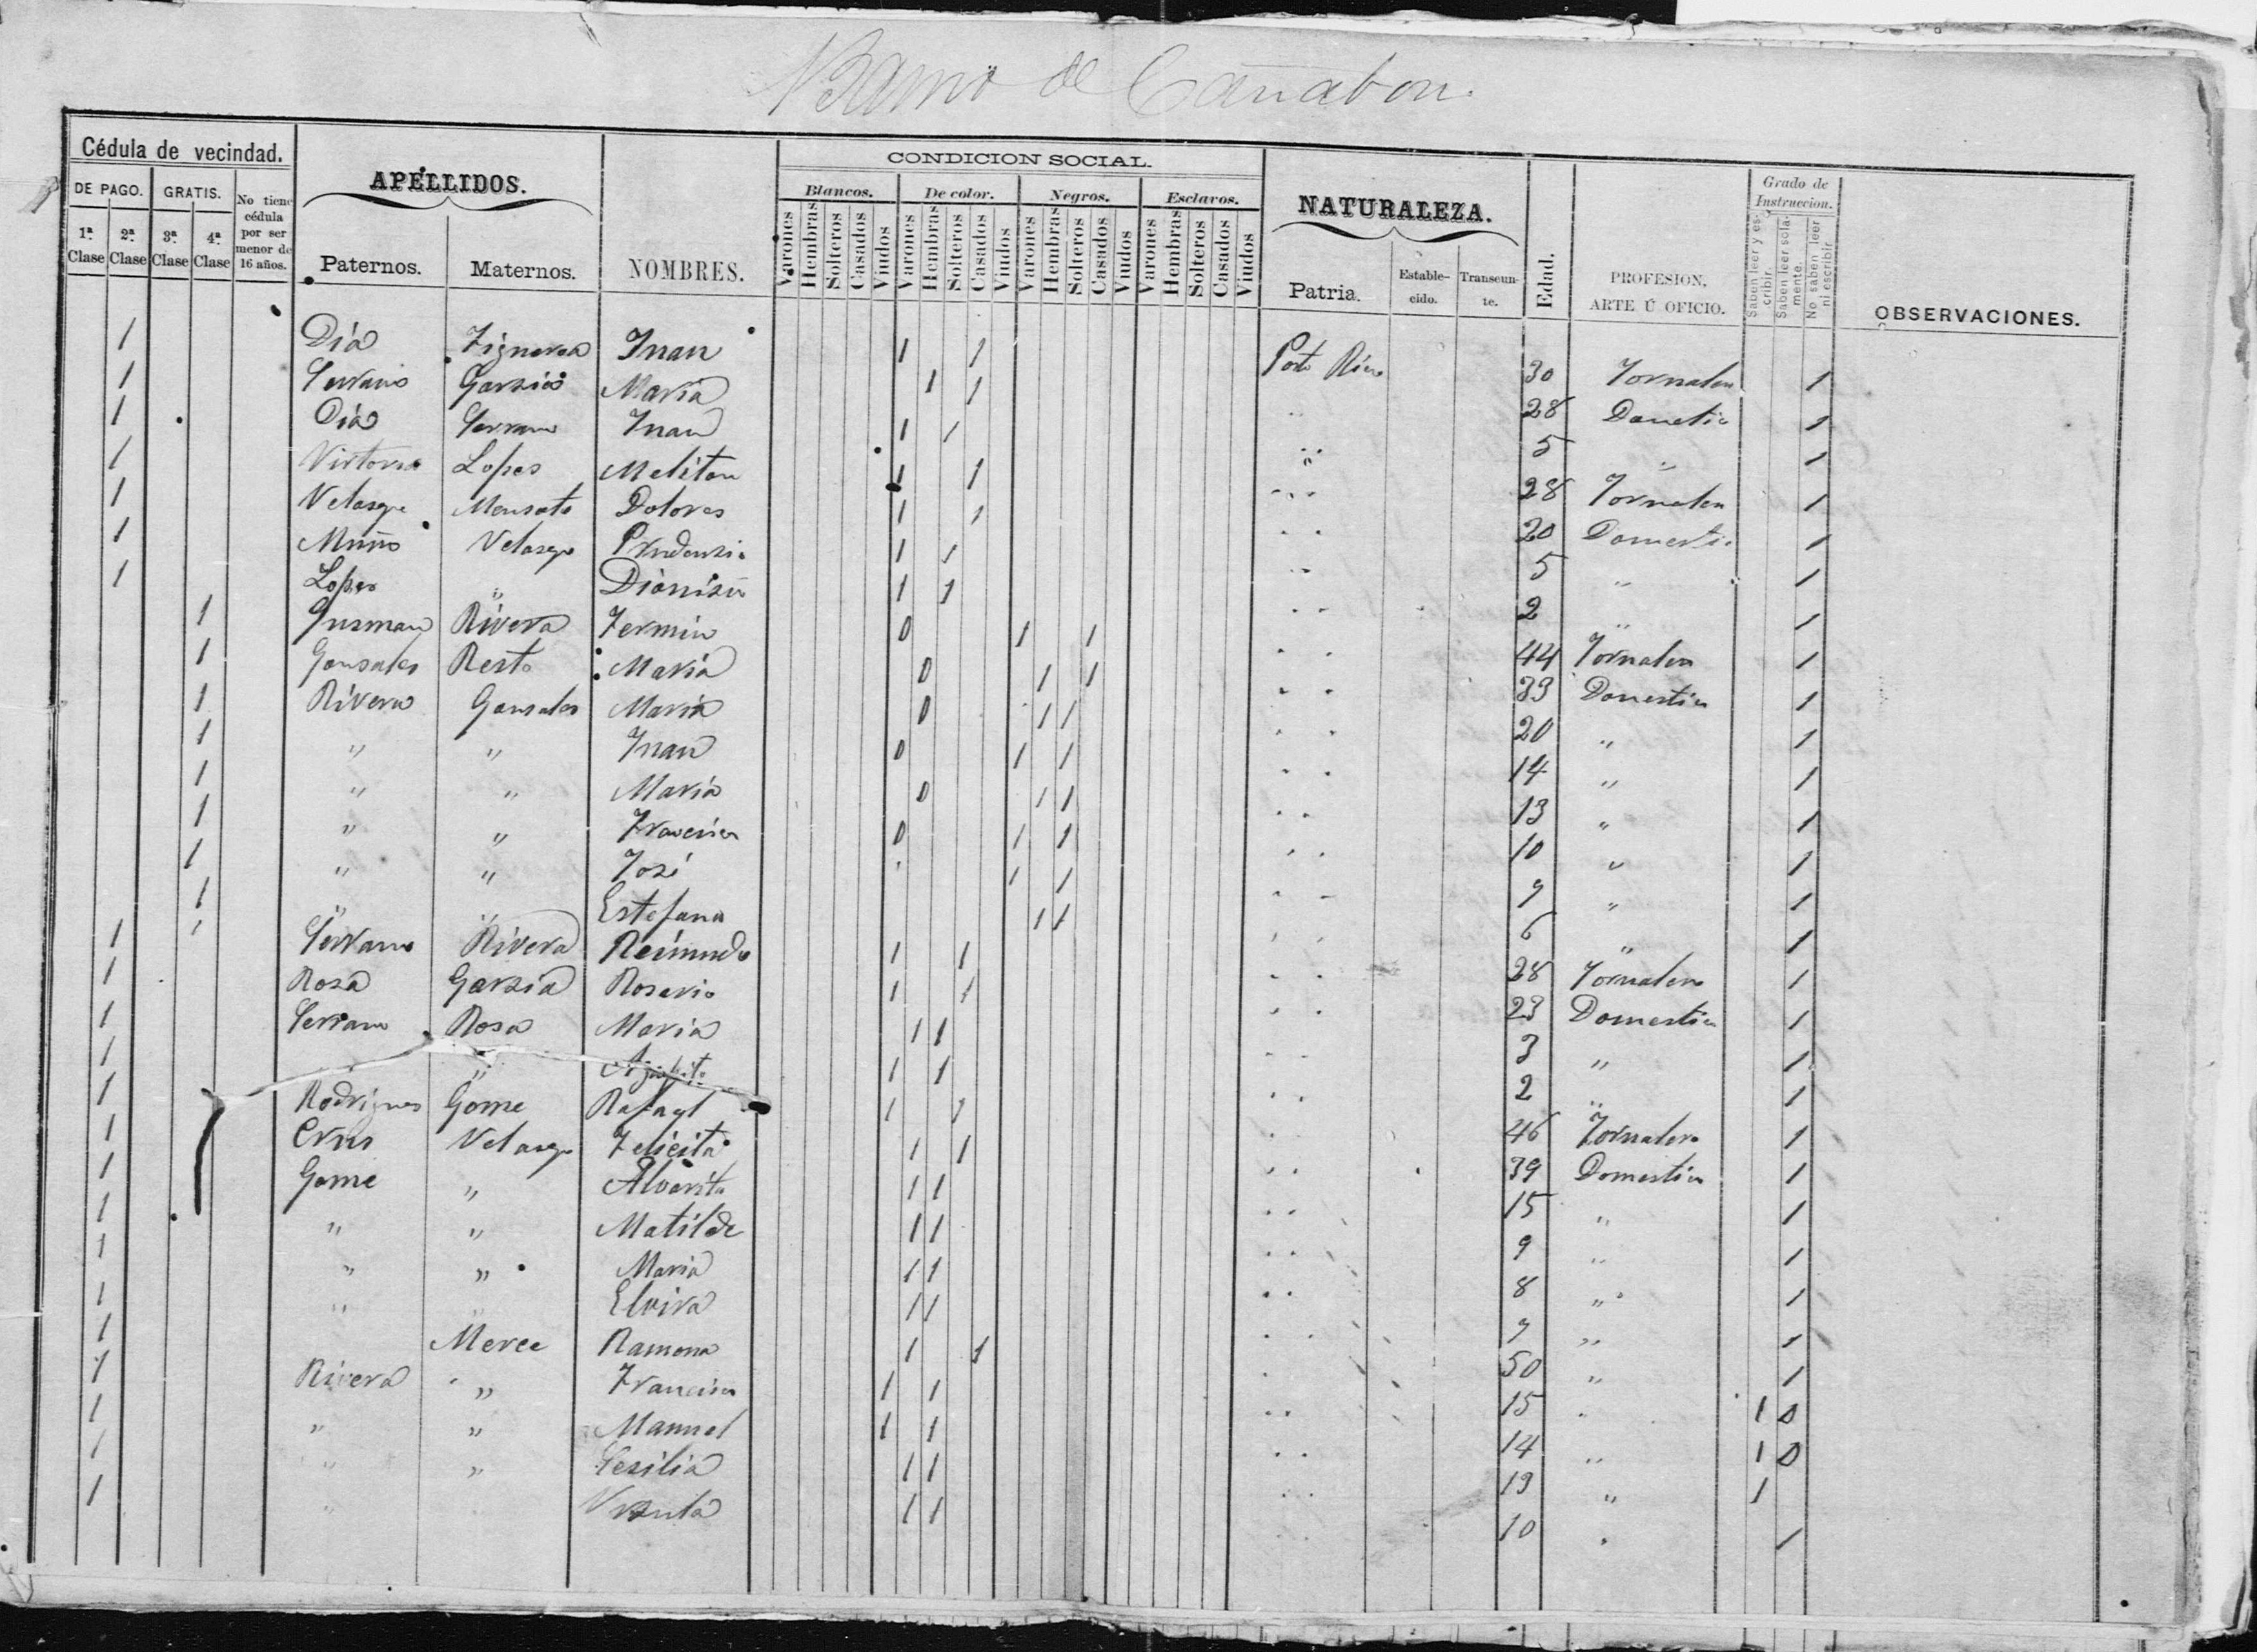 Barrio de Cañabon.
Cédula de vecindad. APELLIDOS. NOMBRES. CONDICION SOCIAL. NATURALEZA. Edad. PROFESION, ARTE Ú OFICIO. Grado de Instruccion. OBSERVACIONES.
DE PAGO. GRATIS. No tiene cédula por ser menor de 16 años. Blancos. De color. Negros. Esclavos.
1ª Clase 2ª Clase 3ª Clase 4ª Clase Paternos. Maternos. Varones Hembras Solteros Casados Viudos Varones Hembras Solteros Casados Viudos Varones Hembras Solteros Casados Viudos Varones Hembras Solteros Casados Viudos Patria. Estable-cido. Transeun-te. Saben leer y es-cribir. Saben leer sola-mente. No saben leer ni escribir
1 Dia Figueroa Juan 1 1 Porto Rico 30 Jornalero 1
1 Serrano Garzia Maria 1 1 " 28 1
1 Dia Serrano Juan 1 1 " 5 " 1
1 Lopes Meliton 1 1 " 28 Jornalero 1
1 Velasque Dolores 1 1 " 20 Domestica 1
1 Velasque Prudenzia 1 1 " 5 " 1
1 Lopes " Dionisio 1 1 " 2 " 1
1 Gusman Rivera Fermin 0 1 1 " 44 Jornalero 1
1 Gonsales Resto Maria 0 1 1 " 33 Domestica 1
1 Rivera Gonsales Maria 0 1 1 " 20 " 1
1 " " Juan 0 1 1 " 14 " 1
1 " " Maria 0 1 1 " 13 " 1
1 " " 0 1 1 " 10 " 1
1 " " José 1 1 " 9 " 1
1 " " Estefana 1 1 " 6 " 1
1 Serrano Rivera Reimundo 1 1 " 28 Jornalero 1
1 Rosa Garzia Rosario 1 1 " 23 Domestica 1
1 Serrano Rosa Maria 1 1 " 3 " 1
1 " 1 1 " 2 " 1
1 Rodrigues Gome Rafael 1 1 " 46 Jornalero 1
1 Crus Velasque Felicita 1 1 " 39 Domestica 1
1 Gome " Alvarita 1 1 " 15 " 1
1 " " Matilde 1 1 " 9 " 1
1 " " Maria 1 1 " 8 " 1
1 " " Elvira 1 1 " 7 " 1
1 Merce Ramona 1 1 " 50 " 1
1 Rivera " Francisco 1 1 " 15 " 1 0
1 " " Manuel 1 1 " 14 " 1 0
1 " " Sesilia 1 1 " 13 " 1
1 " Ursula 1 1 " 10 " 1